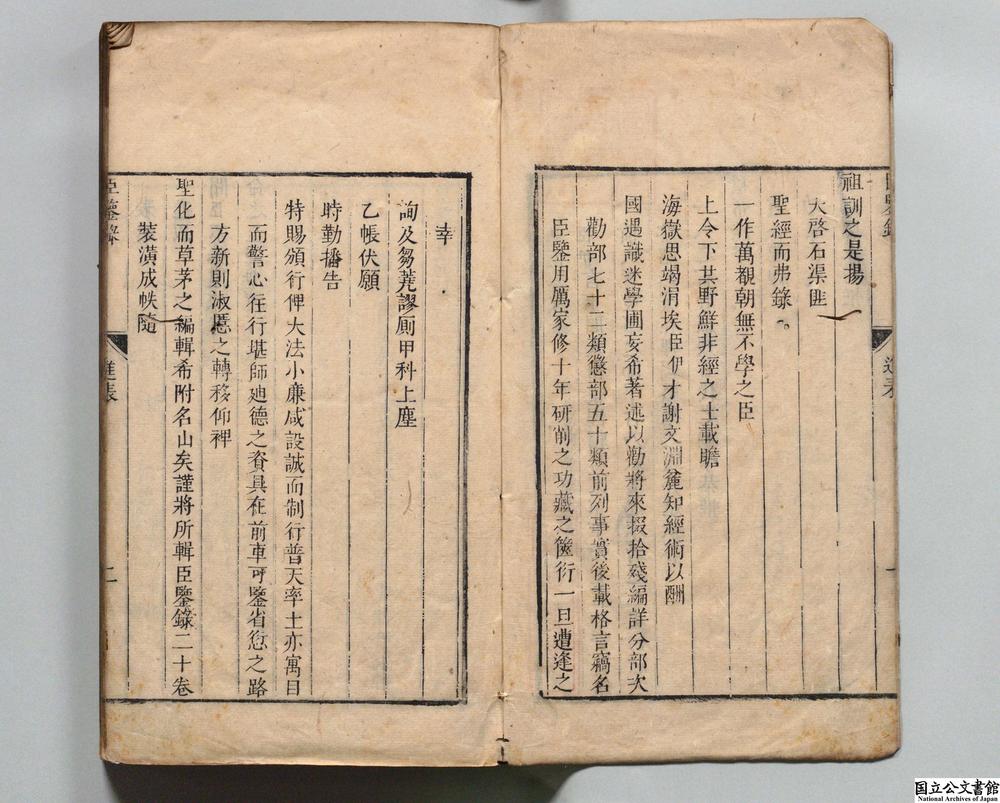 臣鑒錄
進表
一
祖訓之是揚
大啓石渠匪
聖經而弗錄
一作萬覩朝無不學之臣
上令下其野鮮非經之士載瞻
海嶽思竭涓埃臣伊才謝文淵麄知經術以酬
國遇識迷學圃妄希著述以勸將來掇拾殘編詳分部次
勸部七十二類懲部五十類前列事實後載格言竊名
臣鑒用厲家修十年研削之功藏之篋衍一旦遭逢之
幸
詢及芻蕘謬厠甲科上塵
乙帳伏願
時勤播告
特賜頒行俾大法小廉咸設誠而制行普天率土亦寓目
而警心往行堪師廸德之資具在前車可鑒省愆之路
方新則淑慝之轉移仰裨
聖化而草茅之編輯希附名山矣謹將所輯臣鑒錄二十卷
裝潢成帙隨
臣鑒錄
進表
二
国立公文書館
National Archives of Japan